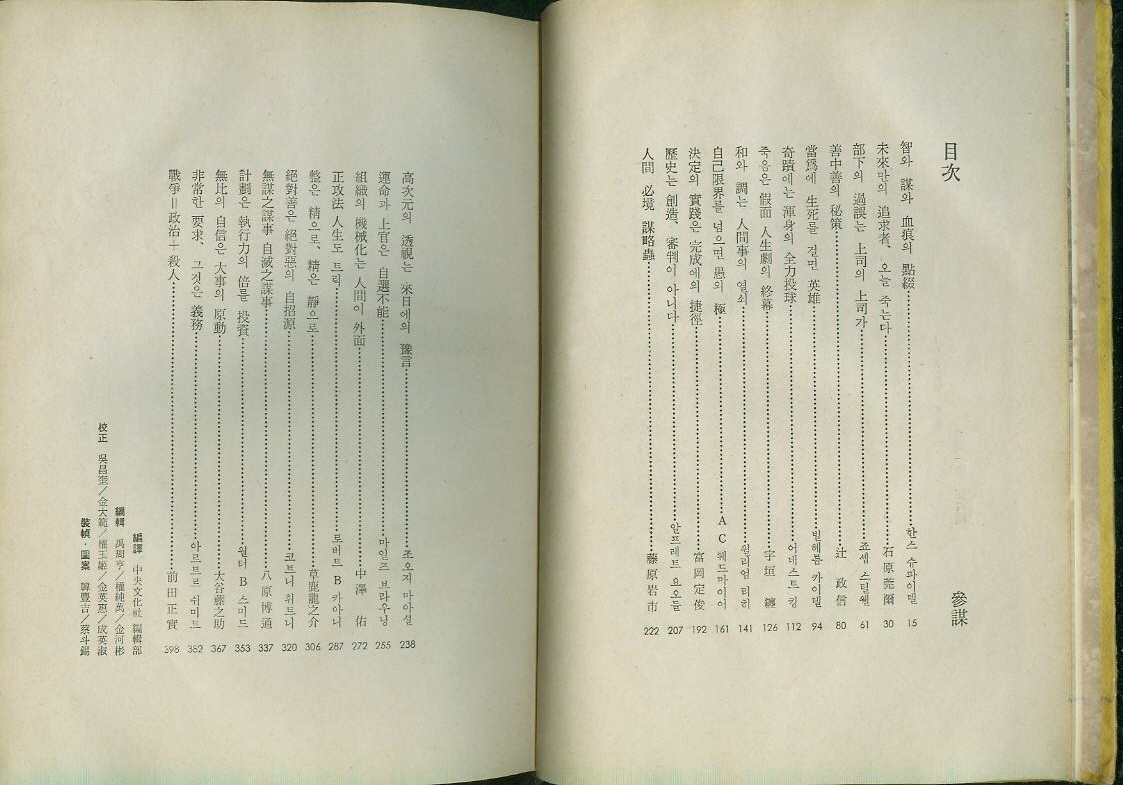 目次
參謀
智와 謀와 血痕의 點綴 한스 슈파이델 15
未來만의 追求者、오늘 죽는다 石原莞爾 30
部下의 過誤는 上司의 上司가 죠셉 스틸웰 61
善中善의 秘策 辻 政信 80
當爲에 生死를 걸면 英雄 빌헤름 카이델 94
奇蹟에는 渾身의 全力投球 어네스트 킹 112
죽음은 假面 人生劇의 終幕 宇垣 纏 126
和와 調는 人間事의 열쇠 윌리엄 리히 141
自己限界를 넘으면 愚의 極 A C 웨드마이어 161
決定의 實踐은 完成에의 捷徑 富岡定俊 192
歷史는 創造、審判이 아니다 알프레트 요오들 207
人間 必境 謀略蟲 藤原岩市 222
高次元의 透視는 來日에의 豫言 조오지 마아셜 238
運命과 上官은 自選不能 마일즈 브라우닝 255
組織의 機械化는 人間이 外面 中澤 佑 272
正攻法 人生도 트릭 로버트 B 카아니 287
整은 精으로、精은 靜으로 草鹿龍之介 306
絕對善은 絕對惡의 自招源 코트니 휘트니 320
無謀之謀事 自滅之謀事 八原博通 337
計劃은 執行力의 倍를 投資 월터 B 스미드 353
無比의 自信은 大事의 原動 大谷藤之助 367
非常한 要求、그것은 義務 아르트르 쉬미트 382
戰爭＝政治＋殺人 前田正實 398
編譯 中央文化社 編輯部
編輯 禹周亨／權純萬／金河彬
校正 吳昌奎／金大範／權玉姬／金英惠／成英淑
裝幀・圖案 韓豊吉／蔡斗錫